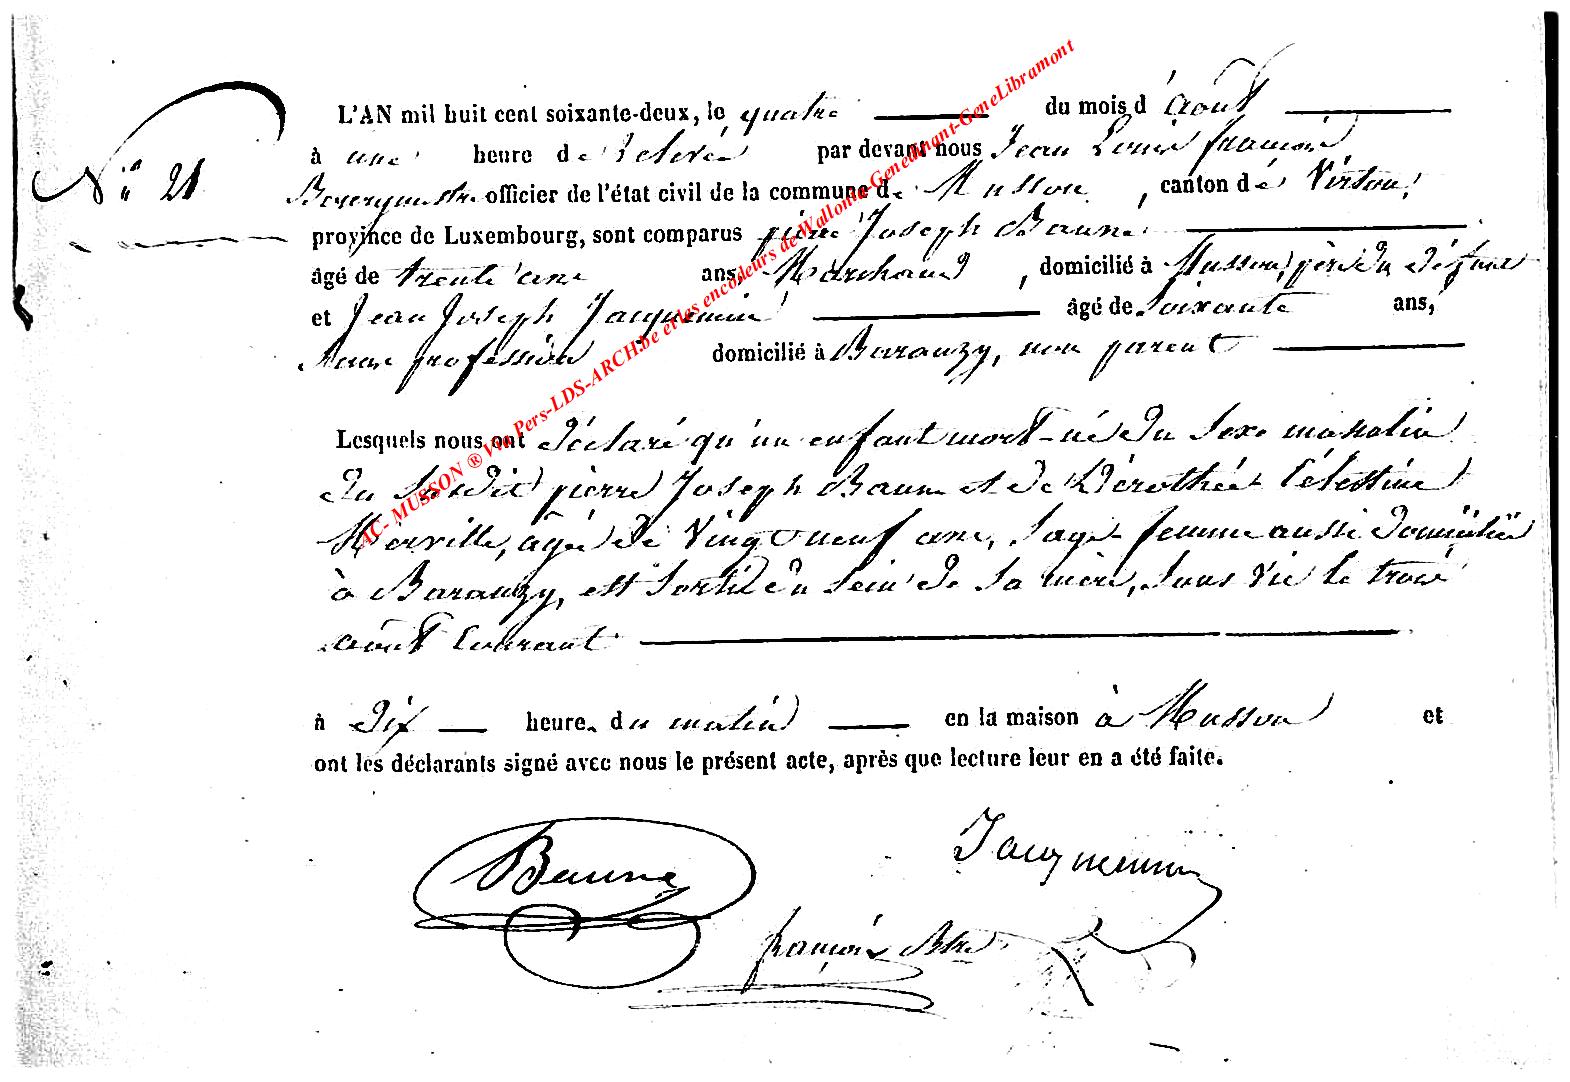 L'AN mil huit cent soixante-deux, le quatre du mois d'août
N° 21
à une heure de relevée par devant nous Jean Louis françois
Bourgmestre officier de l'état civil de la commune de Musson, canton de Virton,
province de Luxembourg, sont comparus pierre Joseph Baune
âgé de trente ans ans, Marchand, domicilié à Musson, père du défunt
et Jean Joseph Jacquemin âgé de soixante ans,
sans profession domicilié à Baranzy, non parent
Lesquels nous ont déclaré qu'un enfant mort-né du sexe masculin
du susdit pierre Joseph Baune et de Dérothée Célestine
Merville, agée de vingt neuf ans, sage femme aussi domiciliée
à Baranzy, est sortie du sein de sa mère, sans vie le trois
août courant
à dix heure. du matin en la maison à Musson et
ont les déclarants signé avec nous le présent acte, après que lecture leur en a été faite.
Baune
Jacquemin
françois Btre
AC- MUSSON ® Via Pers-LDS-ARCH.be et les encodeurs de Wallonia-Genedinant-GeneLibramont